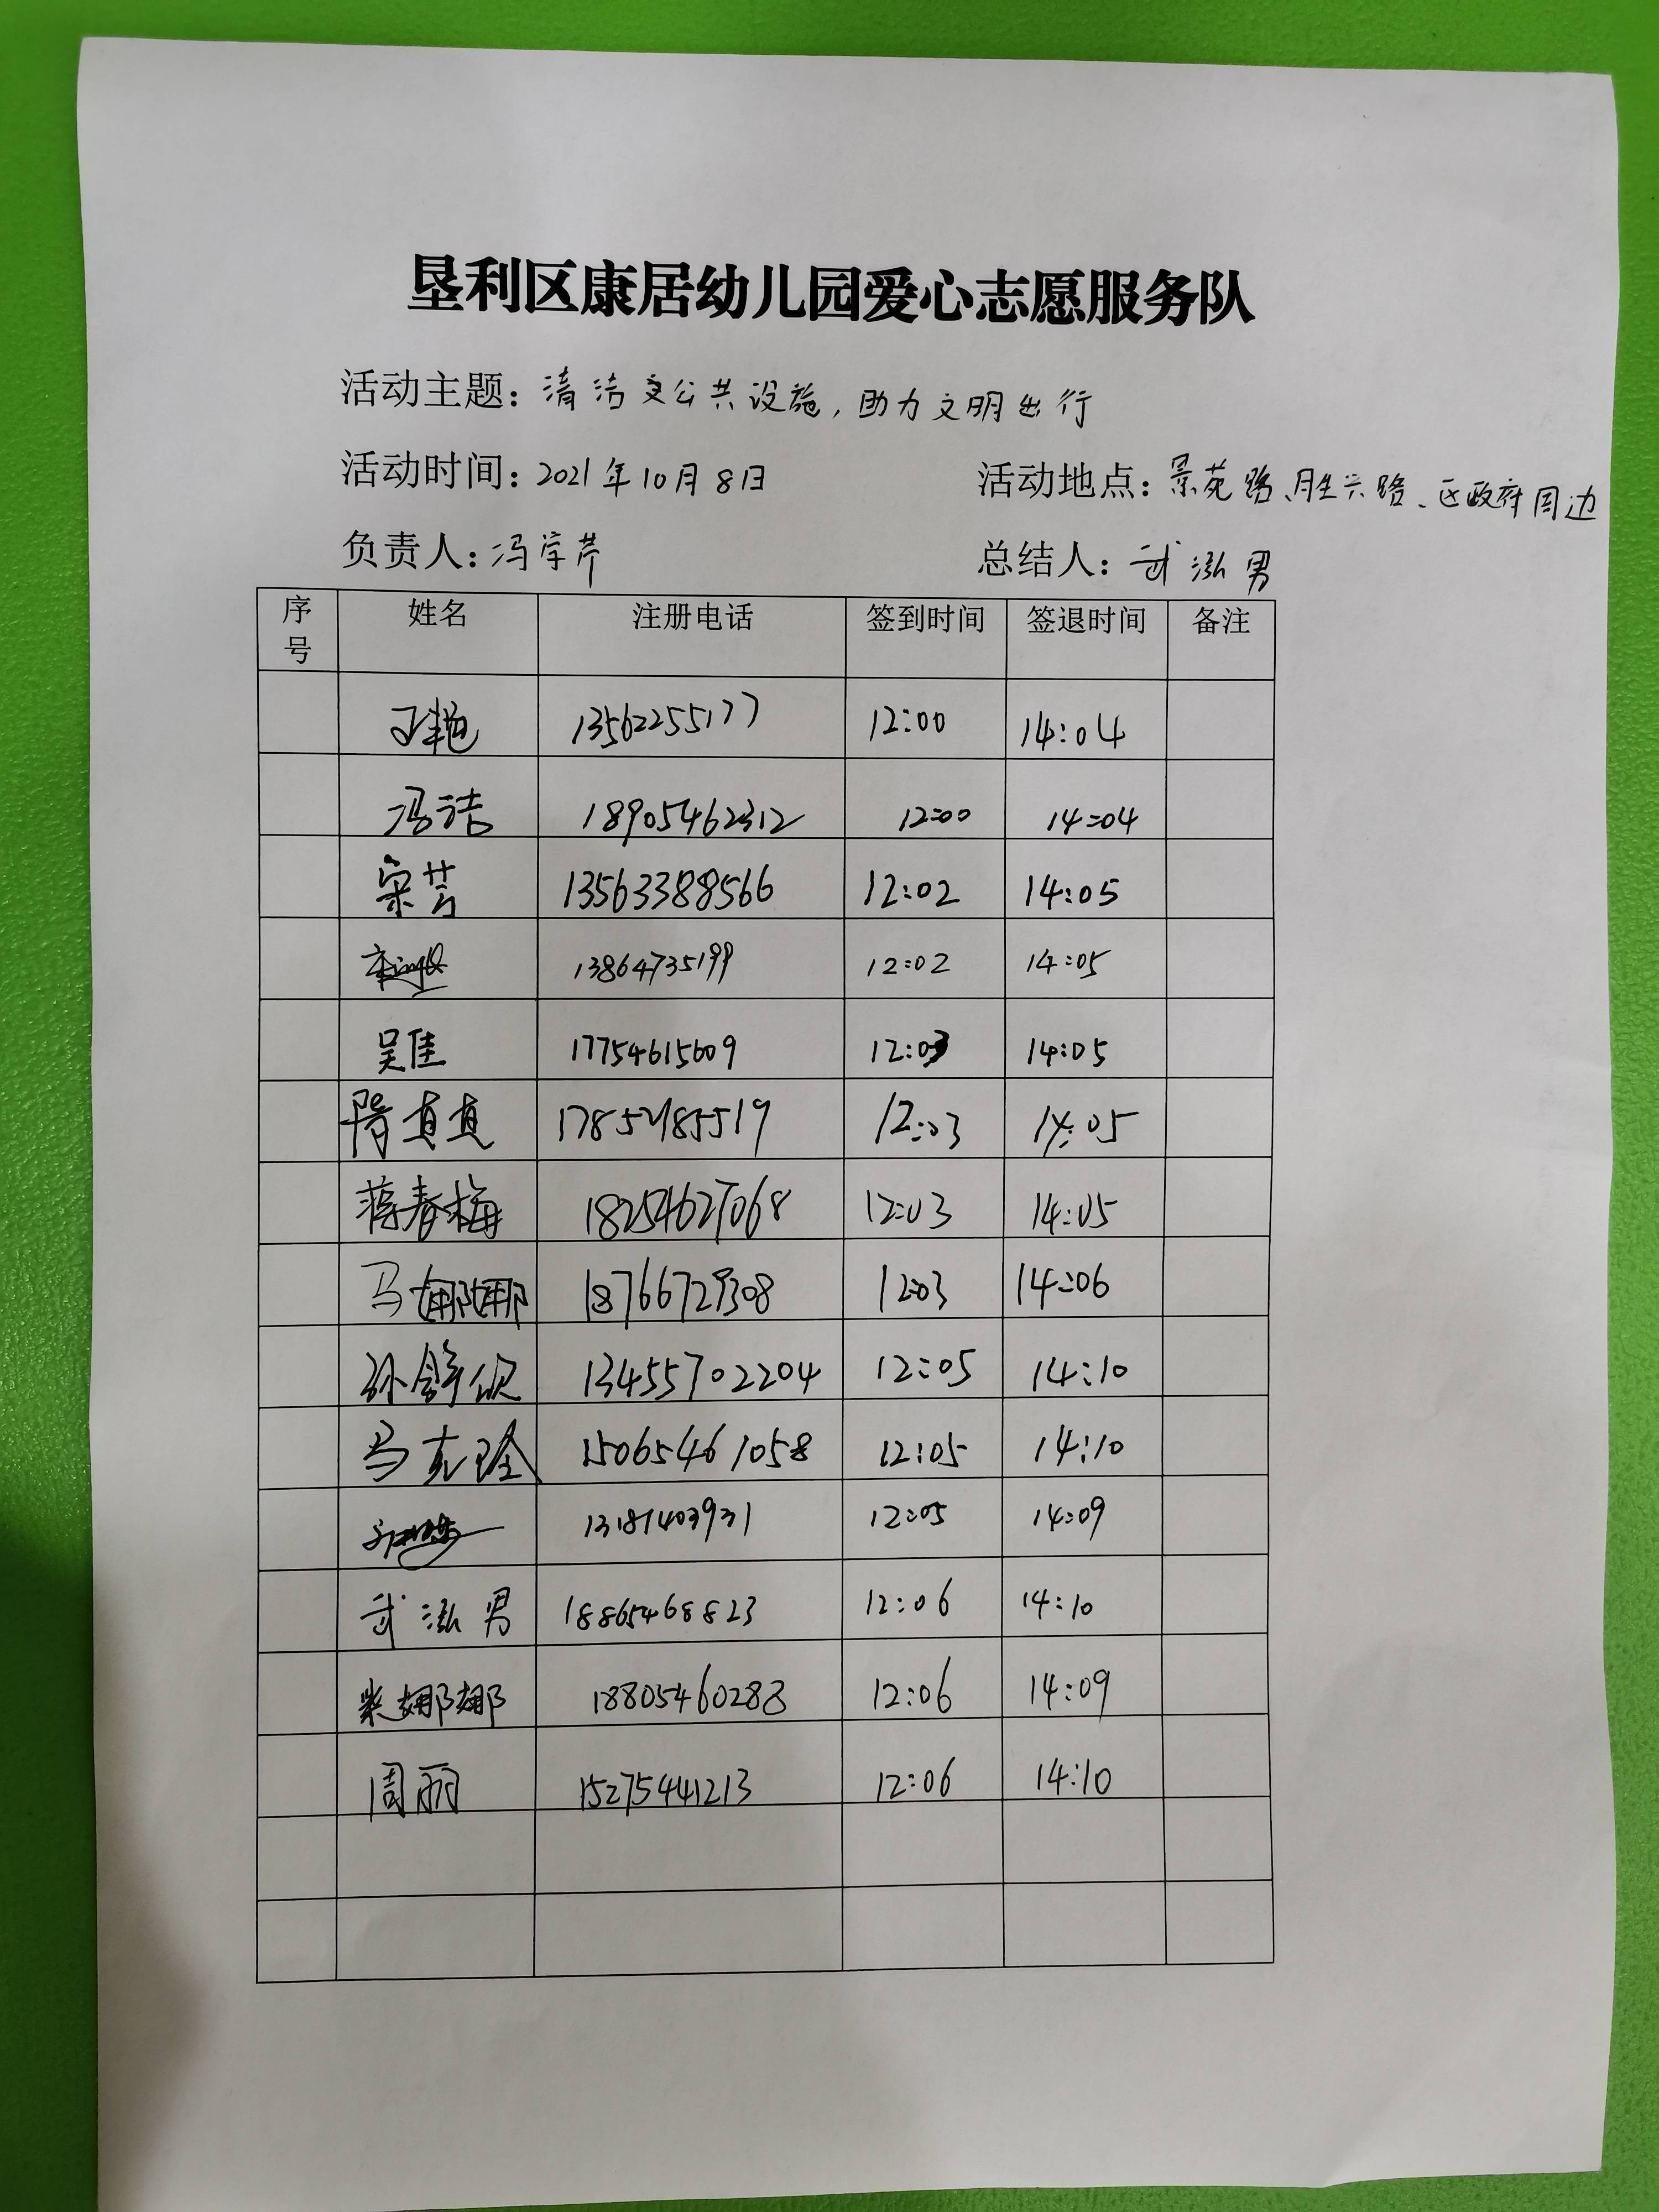 垦利区康居幼儿园爱心志愿服务队
活动主题：清洁交公共设施，助力文明出行
活动时间：2021年10月8日 活动地点：景苑路、胜兴路、区政府周边
负责人：冯学芹 总结人：武泓男
序号 姓名 注册电话 签到时间 签退时间 备注
王艳 13562255177 12:00 14:04
冯洁 18905462312 12:00 14:04
宋芸 13563388566 12:02 14:05
13864735199 12:02 14:05
吴佳 17754615609 12:03 14:05
隋真真 17852185519 12:03 14:05
蒋春梅 18254627068 12:03 14:05
马娜娜 18766729308 12:03 14:06
孙舒欣 13455702204 12:05 14:10
马克玲 15065461058 12:05 14:10
13181403931 12:05 14:09
武泓男 18865468823 12:06 14:10
柴娜娜 18805460288 12:06 14:09
周丽 15275441213 12:06 14:10